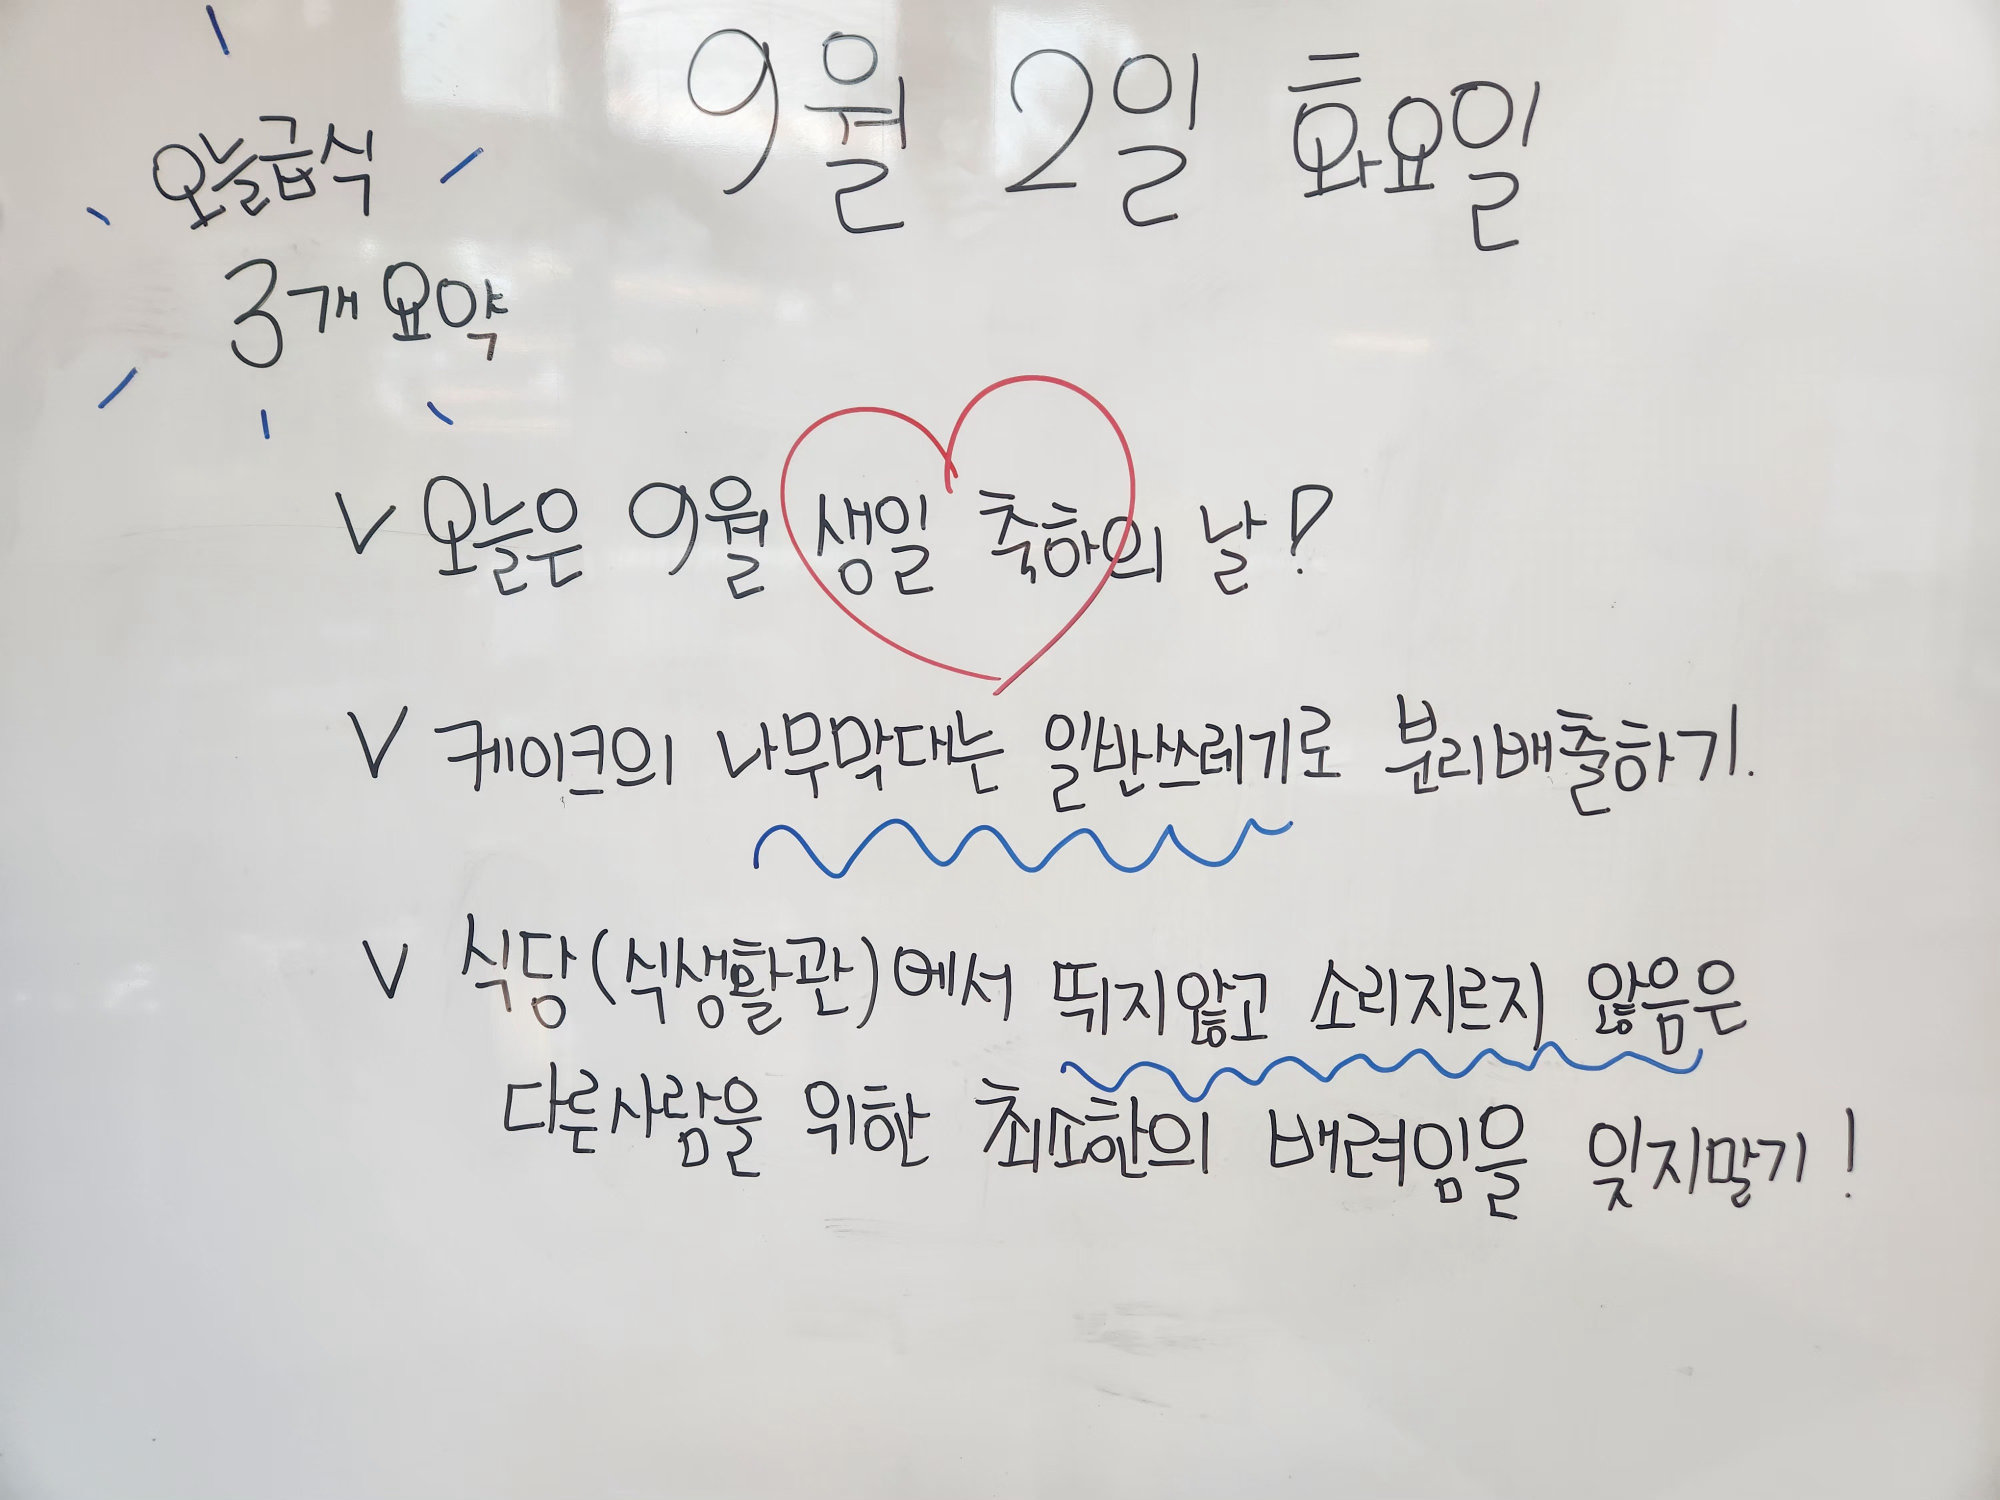 9월 2일 화요일
오늘급식
3개 요약
V 오늘은 9월 생일 축하의 날!
V 케이크의 나무막대는 일반쓰레기로 분리배출하기.
V 식당(식생활관)에서 뛰지않고 소리지르지 않음은
다른사람을 위한 최소한의 배려임을 잊지말기!